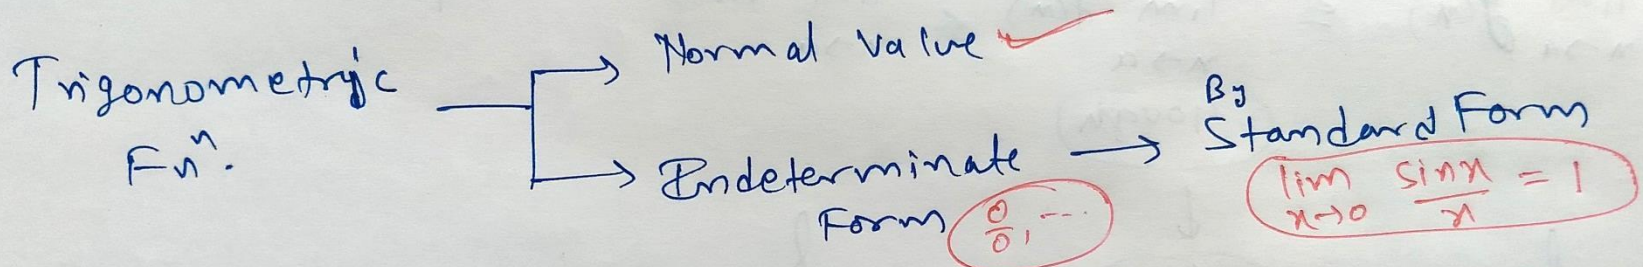 Trigonometric
Fnⁿ.
Normal Value ✓
Indeterminate
Form 0/0, ...
By
Standard Form
lim x→0 sinx/x = 1